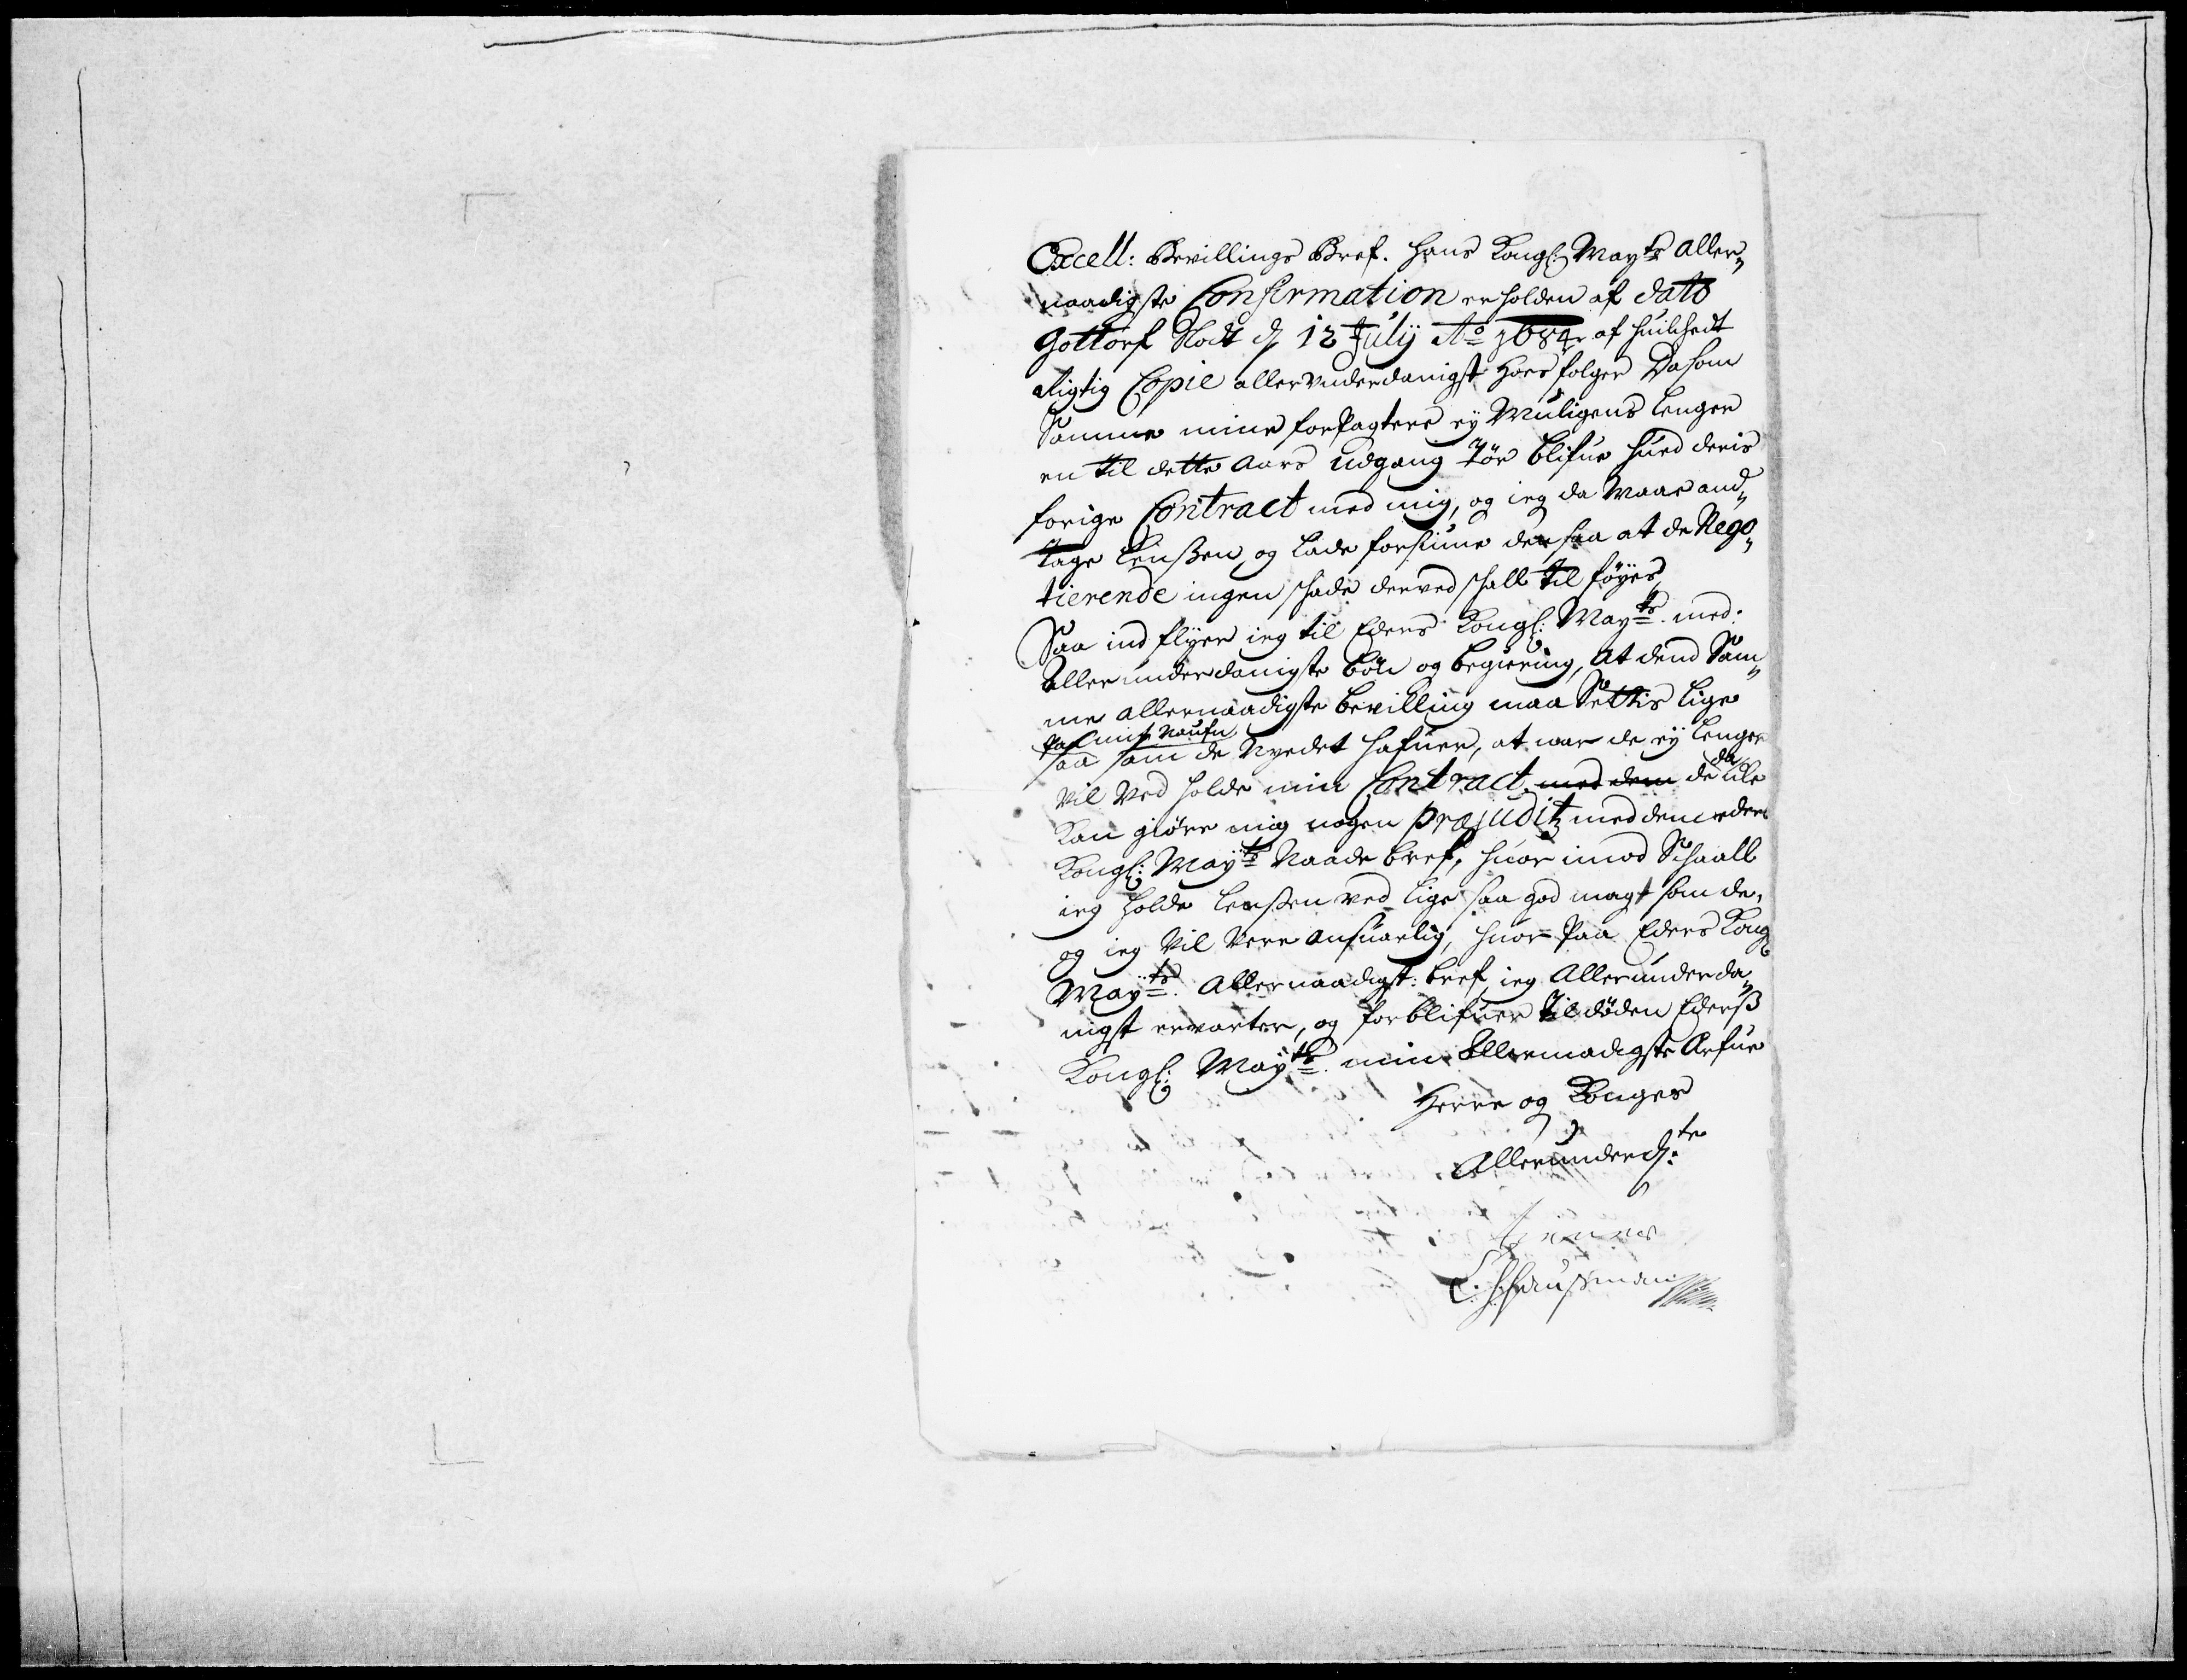 Excell: Bevillings Bref. hans Kongl: Mayts aller„
naadigste Confirmation erholden af dato
Gottorf Slott d 12 July Ao 1684 af huilchedt
rigtig Copie allervnderdanigst hoes følger Da som
Samme mine forPagtere ey Muligens lenger
en til dette aars udgang tør blifue hued deris
forige Contract med mig, og ieg da maae and„
tage Linssen, og lade forsiune den saa at de Nego„
tierende ingen schade derved schall til føyes,
Saa ind flyer ieg til Eders Kongl: Mayts. med:
aller underdanigste bøn og begiering, at dend Sam„
me allernaadigste bevilling maa Settis lige
Paa mit Naufn
saa som de Nyedet hafuer, at naar de ey lenger
vil ved holde min Contract med dem de da icke
kan giøre mig nogen præjuditz med dem eders
Kongl: Mayts Naade bref, huor imod Schaall
ieg holde Linssen ved lige saa god magt som de,
og ieg vil vere ansuarlig, huor Paa Eders Kongl
Mayts. Allernaadigst: bref ieg Allerunderda„
nigst erwarter, og forblifuer til døden Ederss
Kongl: Mayts. min Allernaadigste Arfue
Herre og Konges
Allerunderd:te
tienner
C. H. Haussman